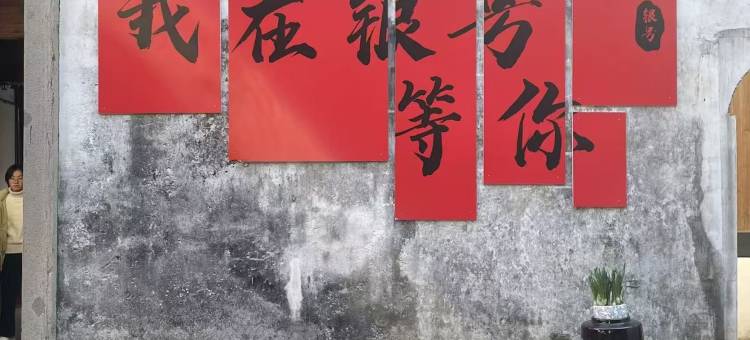 我在银号
等你
银号